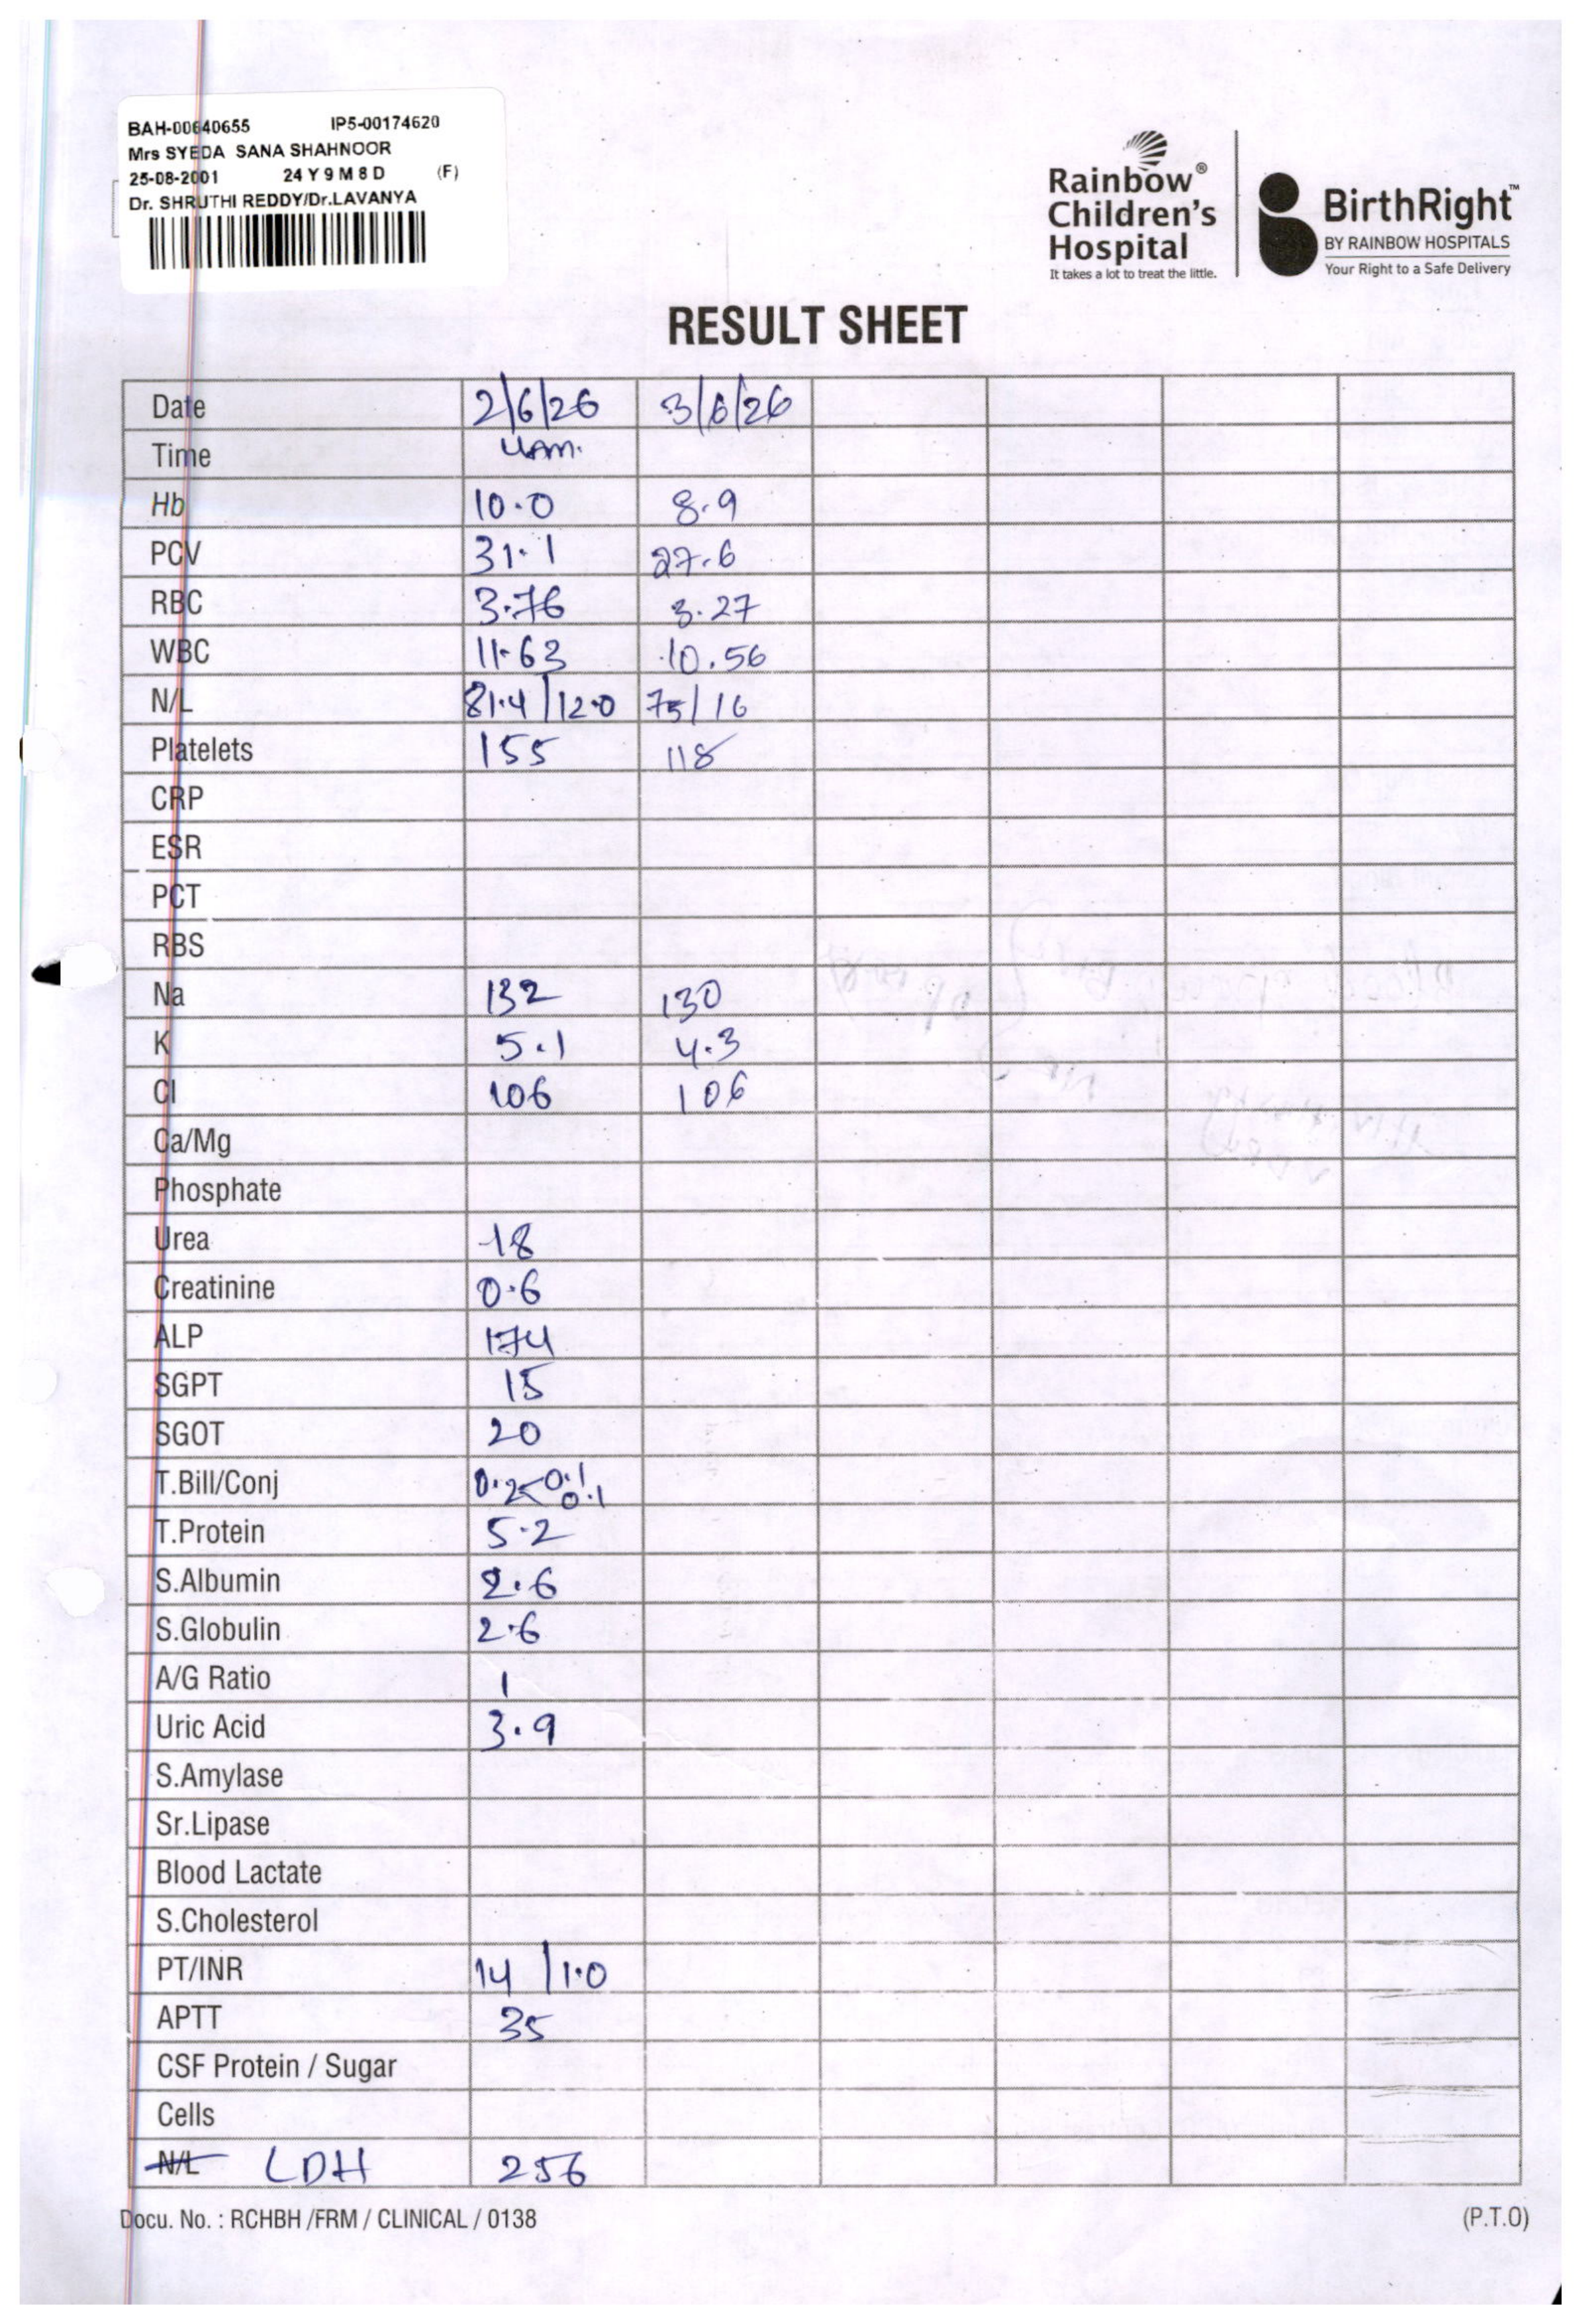 BAH-00640655 IP5-00174620
Mrs SYEDA SANA SHAHNOOR
25-08-2001 24 Y 9 M 8 D (F)
Dr. SHRUTHI REDDY/Dr.LAVANYA
Rainbow®
Children's
Hospital
It takes a lot to treat the little.
BirthRight™
BY RAINBOW HOSPITALS
Your Right to a Safe Delivery
RESULT SHEET
Date 2/6/26 3/6/26
Time 4am.
Hb 10.0 8.9
PCV 31.1 27.6
RBC 3.76 3.27
WBC 11.63 10.56
N/L 81.4/12.0 75/16
Platelets 155 118
CRP
ESR
PCT
RBS
Na 132 130
K 5.1 4.3
Cl 106 106
Ca/Mg
Phosphate
Urea 18
Creatinine 0.6
ALP 174
SGPT 15
SGOT 20
T.Bill/Conj 0.2<0.1 0.1
T.Protein 5.2
S.Albumin 2.6
S.Globulin 2.6
A/G Ratio 1
Uric Acid 3.9
S.Amylase
Sr.Lipase
Blood Lactate
S.Cholesterol
PT/INR 14/1.0
APTT 35
CSF Protein / Sugar
Cells
N/L LDH 256
Docu. No. : RCHBH /FRM / CLINICAL / 0138 (P.T.O)